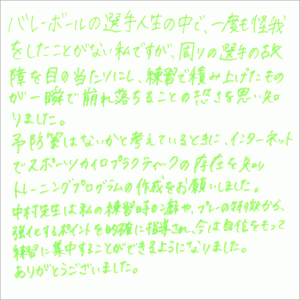 バレーボールの選手人生の中で、一度も怪我
をしたことがない私ですが、周りの選手の故
障を目の当たりにし、練習で積み上げたもの
が一瞬で崩れ落ちることの恐さを思い知
りました。
予防策はないかと考えているときに、インターネット
でスポーツカイロプラクティックの存在を知り
トレーニングプログラムの作成をお願いしました。
中村先生は私の練習時の癖や、プレーの特徴から、
強化するポイントを的確に指導され、今は自信をもって
練習に集中することができるようになりました。
ありがとうございました。